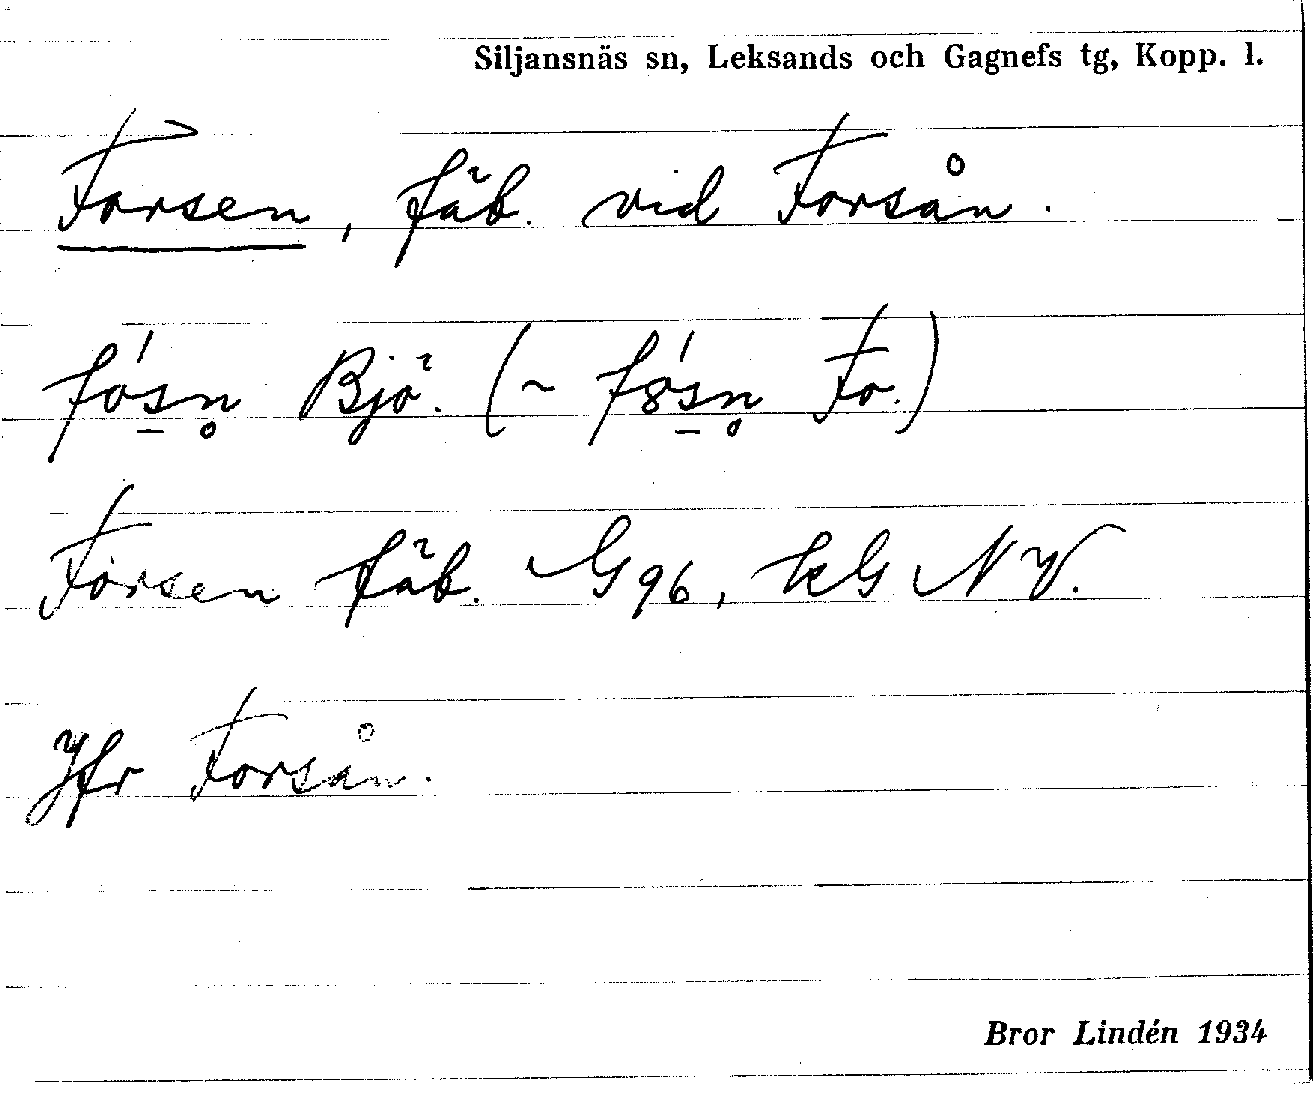 Siljansnäs sn, Leksands och Gagnefs tg, Kopp. l.
Forsen, fäb. vid Forsån.
fó̱sn̥ Bjö. (~ fȣ́s̱n̥ Fo.)
Forsen fäb. G 96, kG NV.
Jfr Forsån.
Bror Lindén 1934